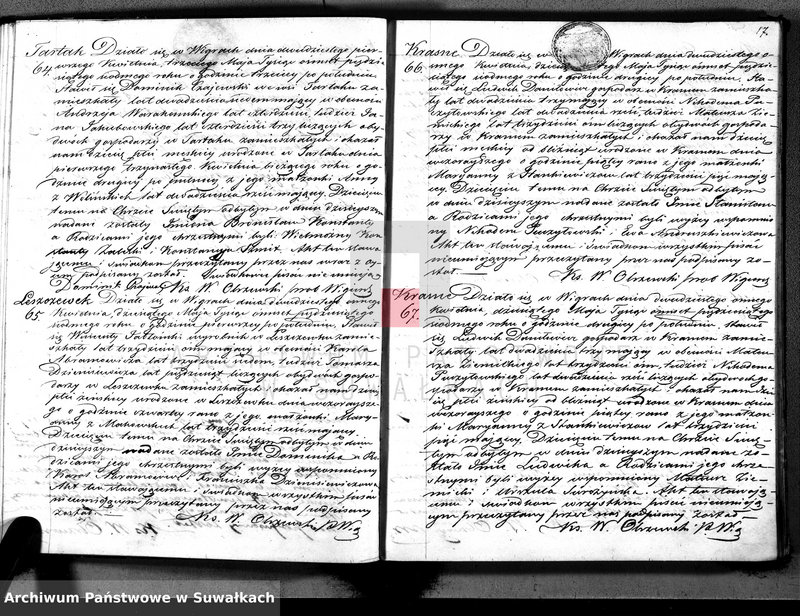 Tartak
64.
Działo się w Wigrach dnia dwudziestego pier-
wszego Kwietnia, trzeciego Maja Tysiąc ośmset pięćdzie-
siątego siódmego roku o godzinie trzeciej po południu
Stawił się Dominik w wsi Tartaku za-
mieszkały lat dwadzieścia siedem mający w obecności
Andrzeja lat czterdzieści tudzież
Jakubowskiego lat czterdzieści trzy liczących oby-
dwóch gospodarzy w Tartaku zamieszkałych i okazał
nam dziecię płci męskiej urodzone w Tartaku dnia
Kwietnia bieżącego roku o go-
dzinie drugiej po północy z jego małżonki Anny
z lat dwadzieścia mającej. Dziecięciu
temu na Chrzcie Świętym odbytym w dniu dzisiejszym
nadane zostały Imiona Bronisław Konstanty
a Rodzicami jego chrzestnymi byli Wielmożny Kon-
stanty i Konstancja Akt ten stawa-
jącemu i świadkom przeczytany przez nas wraz z
podpisany został. Świadkowie pisać nie umieją
Dominik Xs. W. Obrzewski prob. Wigiersk
Leszczewek
65.
Działo się w Wigrach dnia dwudziestego ósmego
Kwietnia dziesiątego Maja Tysiąc ośmset pięćdziesiątego
siódmego roku o godzinie pierwszej po południu. Stawił
się Wawrzyniec Jabłoński wyrobnik w Leszczewku zamie-
szkały lat trzydzieści mający w obecności Karola
Abramowicza lat trzydzieści siedem tudzież Tomasza
Dzienisiewicza lat pięćdziesiąt liczących obydwóch gospo-
darzy w Leszczewku zamieszkałych i okazał nam dziecię
płci żeńskiej urodzone w Leszczewku dnia wczorajsze-
go o godzinie czwartej rano z jego małżonki Mary-
anny z Makowskich lat trzydzieści mającej
Dziecięciu temu na Chrzcie Świętym odbytym w dniu
dzisiejszym nadane zostało Imię Dominika a Ro-
dzicami jej chrzestnymi byli wyżej wspomniony
Karol Abramowicz i Franciszka Dzienisiewiczowa
Akt ten stawającemu i świadkom wszystkim pisać
nieumiejącym przeczytany przez nas podpisany
został. Xs. W. Obrzewski P.W.
17.
Krasne
66.
Działo się w Wigrach dnia dwudziestego ós-
mego Kwietnia, dziesiątego Maja Tysiąc ośmset pięćdzie-
siątego siódmego roku o godzinie drugiej po południu. Sta-
wił się Ludwik Danilewicz gospodarz w Krasnem zamieszka-
ły lat dwadzieścia trzy mający w obecności Nikodema
Puczyłowskiego lat dwadzieścia sześć tudzież Mateusza Zie-
mickiego lat trzydzieści ośm liczących obydwóch gospoda-
rzy w Krasnem zamieszkałych i okazał nam dziecię
płci męskiej z bliźniąt urodzone w Krasnem dnia
wczorajszego o godzinie piątej rano z jego małżonki
Maryanny z Stankiewiczów lat trzydzieści pięć mają-
cej. Dziecięciu temu na Chrzcie Świętym odbytym
w dniu dzisiejszym nadane zostało Imię Stanisław
a Rodzicami jego chrzestnymi byli wyżej wspomnio-
ny Nikodem Puczyłowski i Ewa Andruszkiewiczowa
Akt ten stawającemu i świadkom wszystkim pisać
nieumiejącym przeczytany przez nas podpisany zo-
stał. Xs. W. Obrzewski prob. Wigiersk
Krasne
67.
Działo się w Wigrach dnia dwudziestego ósmego
Kwietnia, dziesiątego Maja Tysiąc ośmset pięćdziesiątego
siódmego roku o godzinie drugiej po południu. Stawił
się Ludwik Danilewicz gospodarz w Krasnem zamie-
szkały lat dwadzieścia trzy mający w obecności Mateu-
sza Ziemickiego lat trzydzieści ośm, tudzież Nikodema
Puczyłowskiego lat dwadzieścia sześć liczących obydwóch go-
spodarzy w Krasnem zamieszkałych i okazał nam dzie-
cię płci żeńskiej z bliźniąt urodzone w Krasnem dnia
wczorajszego o godzinie piątej rano z jego małżon-
ki Maryanny z Stankiewiczów lat trzydzieści
pięć mającej. Dziecięciu temu na Chrzcie Świę-
tym odbytym w dniu dzisiejszym nadane zo-
stało Imię Ludwika a Rodzicami jego chrze-
stnymi byli wyżej wspomniony Mateusz Zie-
micki i Urszula Akt ten stawają-
cemu i świadkom wszystkim pisać nieumieją-
cym przeczytany przez nas podpisany został.
Xs. W. Obrzewski P.W.
Archiwum Państwowe w Suwałkach